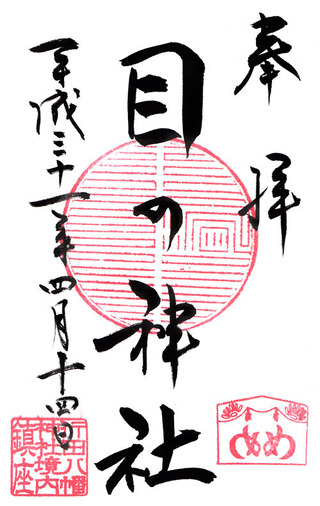 奉拝
目の神社
平成三十一年四月十四日
田八幡
神社境内
鎮座
め